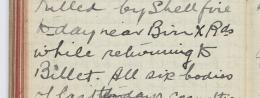 killed by Shellfire
today near Birr X Rds
while returning to
Billet. All six bodies
of last